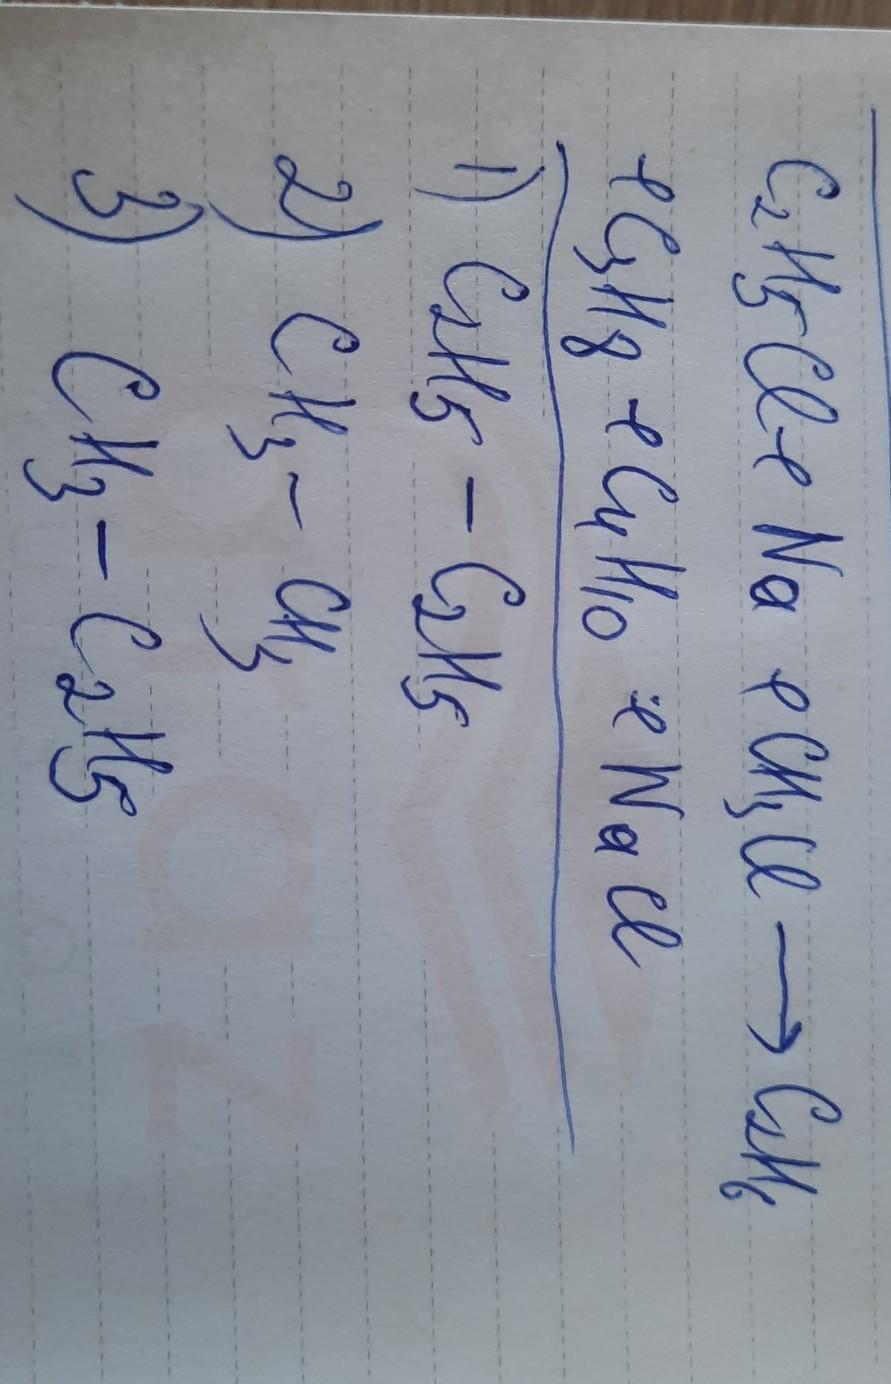 C₂H₅Cl + Na + CH₃Cl → C₂H₆
+ C₃H₈ + C₄H₁₀ + NaCl
1) C₂H₅ – C₂H₅
2) CH₃ – CH₃
3) CH₃ – C₂H₅